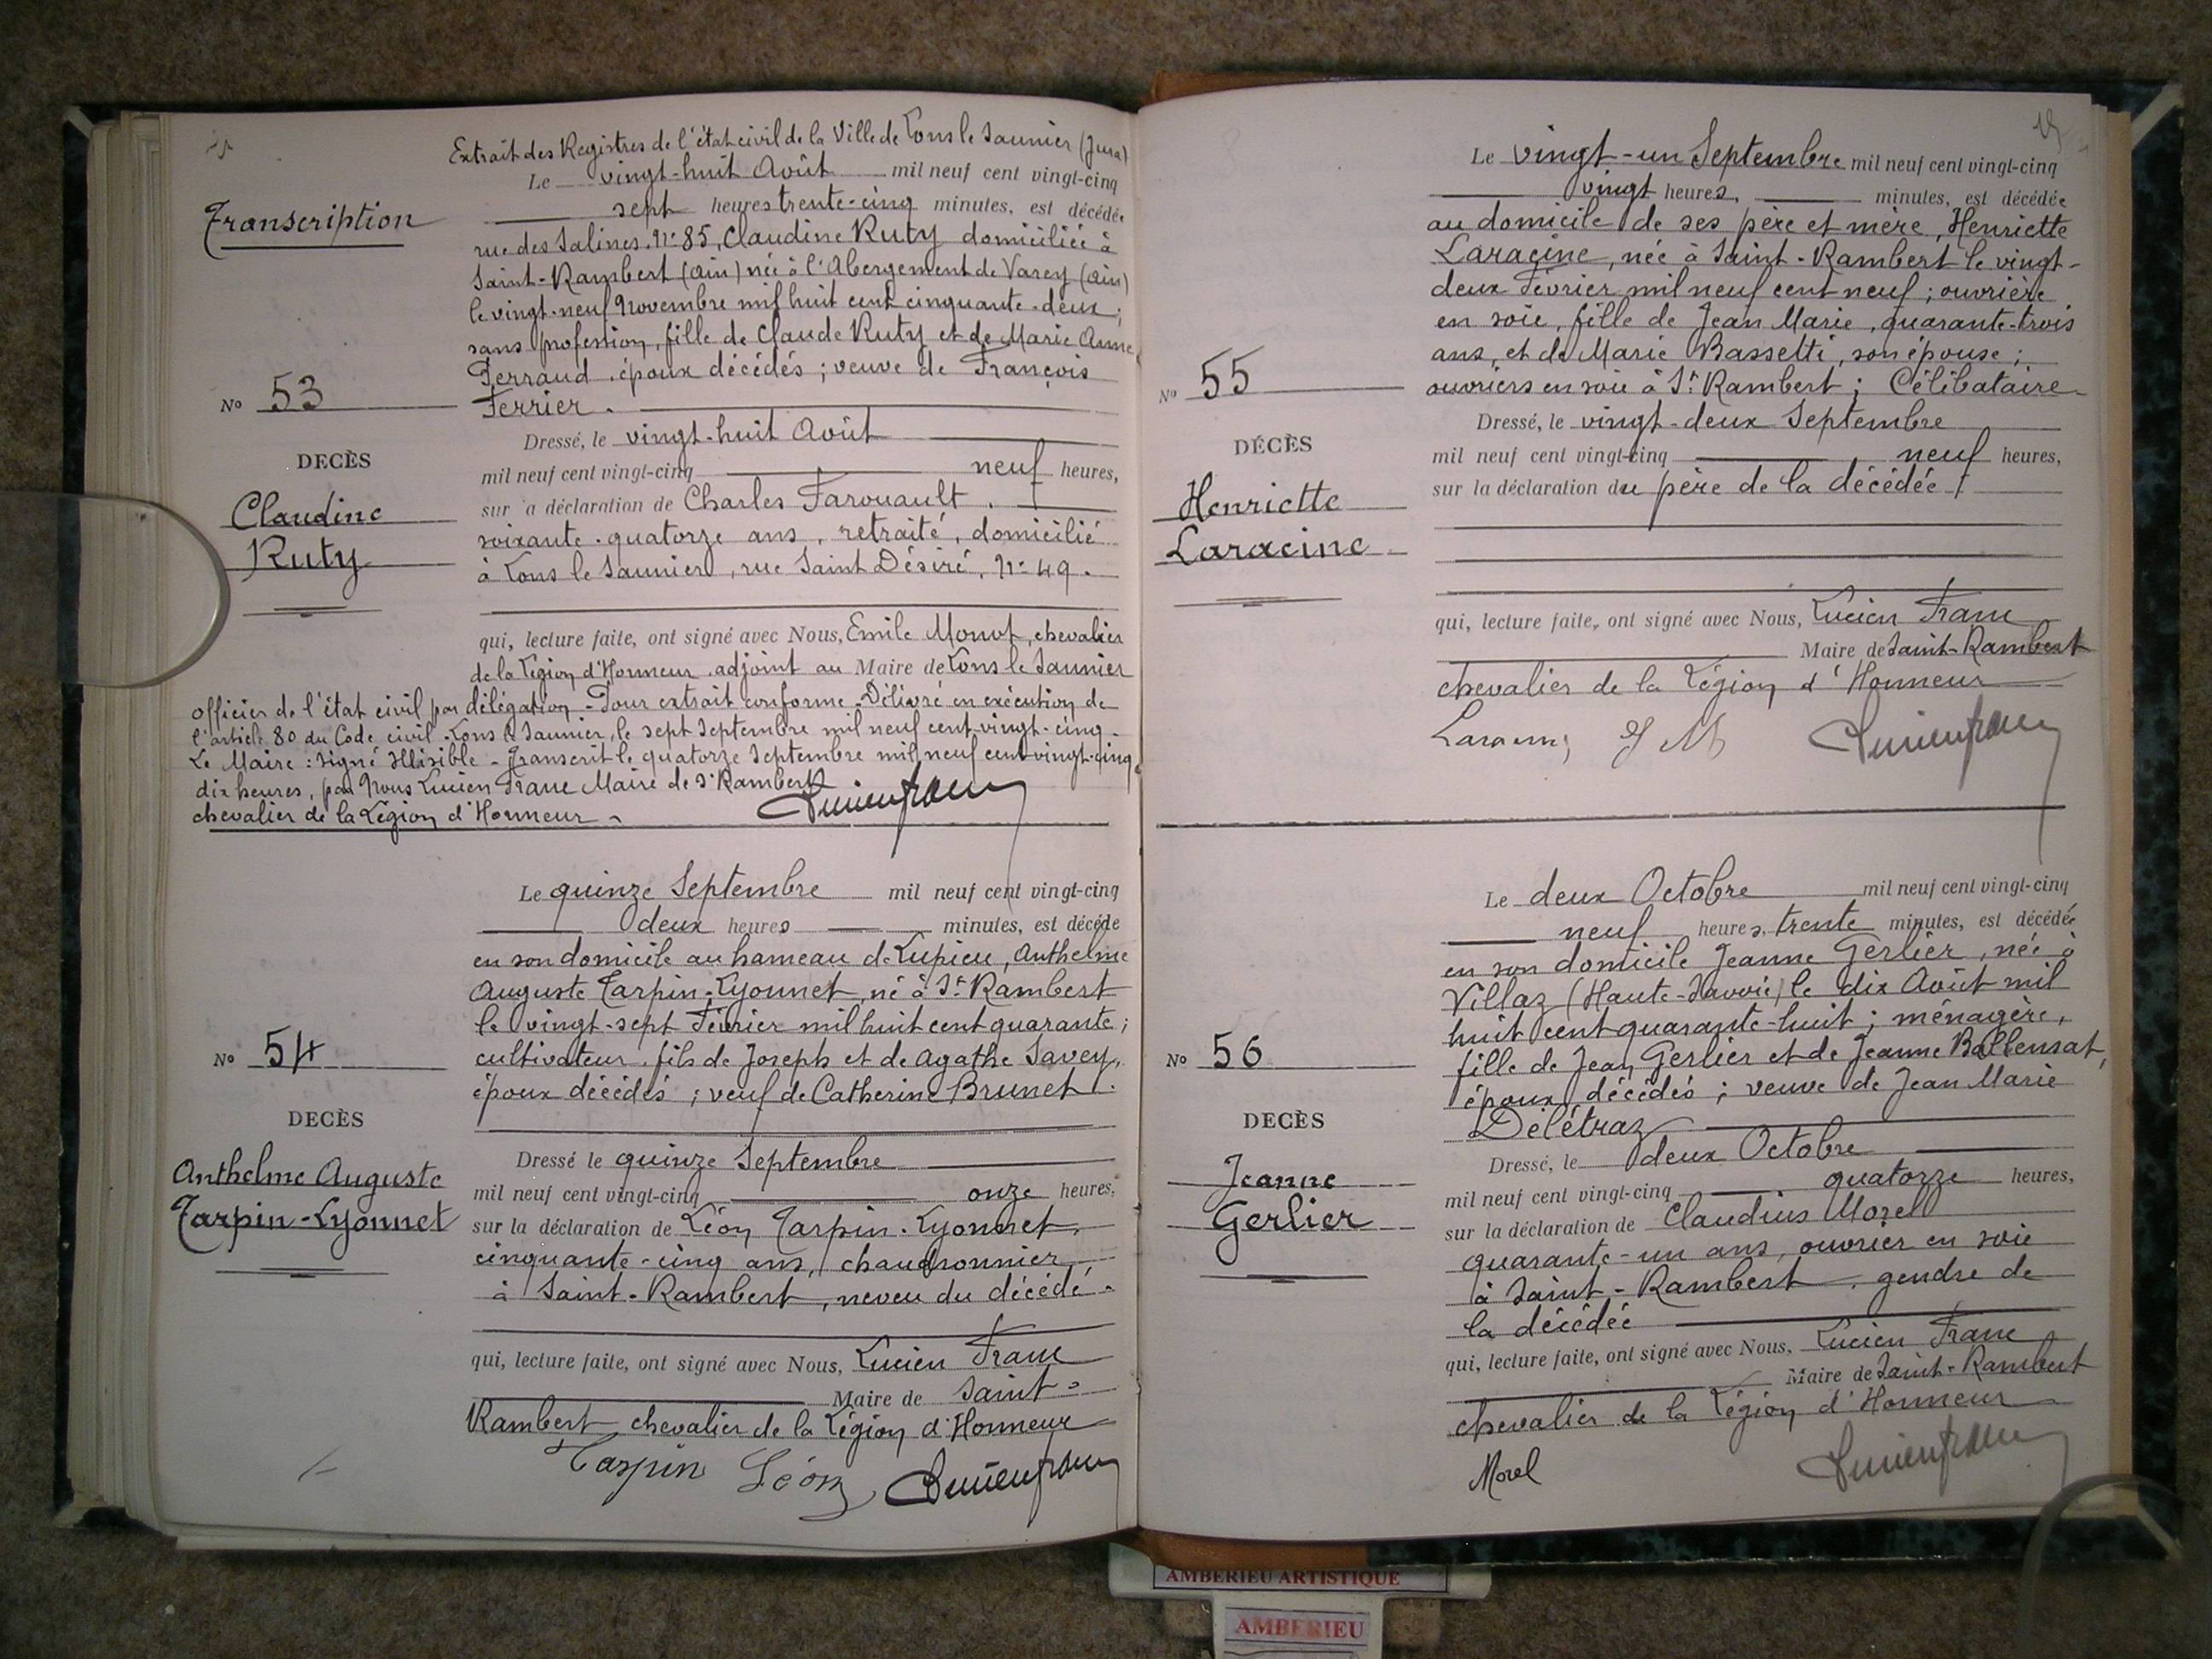 Extrait des Registres de l'état civil de la Ville de Lons le Saunier (Jura)
Le vingt-huit Août mil neuf cent vingt-cinq
Transcription
sept heures trente-cinq minutes, est décédée
rue des Salines, No 85, Claudine Ruty domiciliée à
Saint-Rambert (Ain) née à l'Abergement de Varey (Ain)
le vingt-neuf Novembre mil huit cent cinquante-deux;
sans profession, fille de Claude Ruty et de Marie Anne
Ferraud, époux décédés; veuve de François
No 53
Ferrier.
Dressé, le vingt-huit Août
DECÈS
mil neuf cent vingt-cinq neuf heures,
Claudine
Ruty
sur a déclaration de Charles Farouault,
soixante-quatorze ans, retraité, domicilié
à Lons le Saunier, rue Saint Désiré, No 49.
qui, lecture faite, ont signé avec Nous, Emile Monot, chevalier
de la Légion d'Honneur, adjoint au Maire de Lons le Saunier
officier de l'état civil par délégation - Pour extrait conforme - Délivré en exécution de
l'article 80 du Code civil - Lons le Saunier, le sept Septembre mil neuf cent-vingt-cinq -
Le Maire : signé Illisible - Transcrit le quatorze Septembre mil neuf cent vingt-cinq
dix heures, par Nous Lucien Franc Maire de St Rambert
chevalier de la Légion d'Honneur -
Lucien franc
Le quinze Septembre mil neuf cent vingt-cinq
deux heures minutes, est décédé
en son domicile au hameau de Lupieu, Anthelme
Auguste Tarpin-Lyonnet, né à St Rambert
le vingt-sept Février mil huit cent quarante;
No 54
cultivateur, fils de Joseph et de Agathe Savey,
époux décédés; veuf de Catherine Brunet.
DECÈS
Anthelme Auguste
Tarpin-Lyonnet
Dressé le quinze Septembre
mil neuf cent vingt-cinq onze heures,
sur la déclaration de Léon Tarpin-Lyonnet,
cinquante-cinq ans, chaudronnier
à Saint-Rambert, neveu du décédé.
qui, lecture faite, ont signé avec Nous, Lucien Franc
Maire de Saint-
Rambert chevalier de la Légion d'Honneur
Tarpin Léon Lucien franc
Le vingt-un Septembre mil neuf cent vingt-cinq
vingt heures, minutes, est décédée
au domicile de ses père et mère, Henriette
Laracine, née à Saint-Rambert le vingt-
deux Février mil neuf cent neuf; ouvrière
en soie, fille de Jean Marie, quarante-trois
ans, et de Marie Bassetti, son épouse;
No 55
ouvriers en soie à St Rambert; Célibataire
Dressé, le vingt-deux Septembre
DÉCÈS
mil neuf cent vingt-cinq neuf heures,
Henriette
Laracine
sur la déclaration du père de la décédée.
qui, lecture faite, ont signé avec Nous, Lucien Franc
Maire de Saint-Rambert
chevalier de la Légion d'Honneur
J M Lucien franc
Le deux Octobre mil neuf cent vingt-cinq
neuf heures, trente minutes, est décédée
en son domicile Jeanne Gerlier, née à
Villaz (Haute-Savoie) le dix Août mil
huit cent quarante-huit; ménagère,
No 56
fille de Jean Gerlier et de Jeanne Ballensat,
époux décédés; veuve de Jean Marie
DECÈS
Délétraz
Jeanne
Gerlier
Dressé, le deux Octobre
mil neuf cent vingt-cinq quatorze heures,
sur la déclaration de Claudius Morel
quarante-un ans, ouvrier en soie
à Saint-Rambert, gendre de
la décédée
qui, lecture faite, ont signé avec Nous, Lucien Franc
Maire de Saint-Rambert
chevalier de la Légion d'Honneur
Morel Lucien franc
AMBERIEU ARTISTIQUE
AMBERIEU